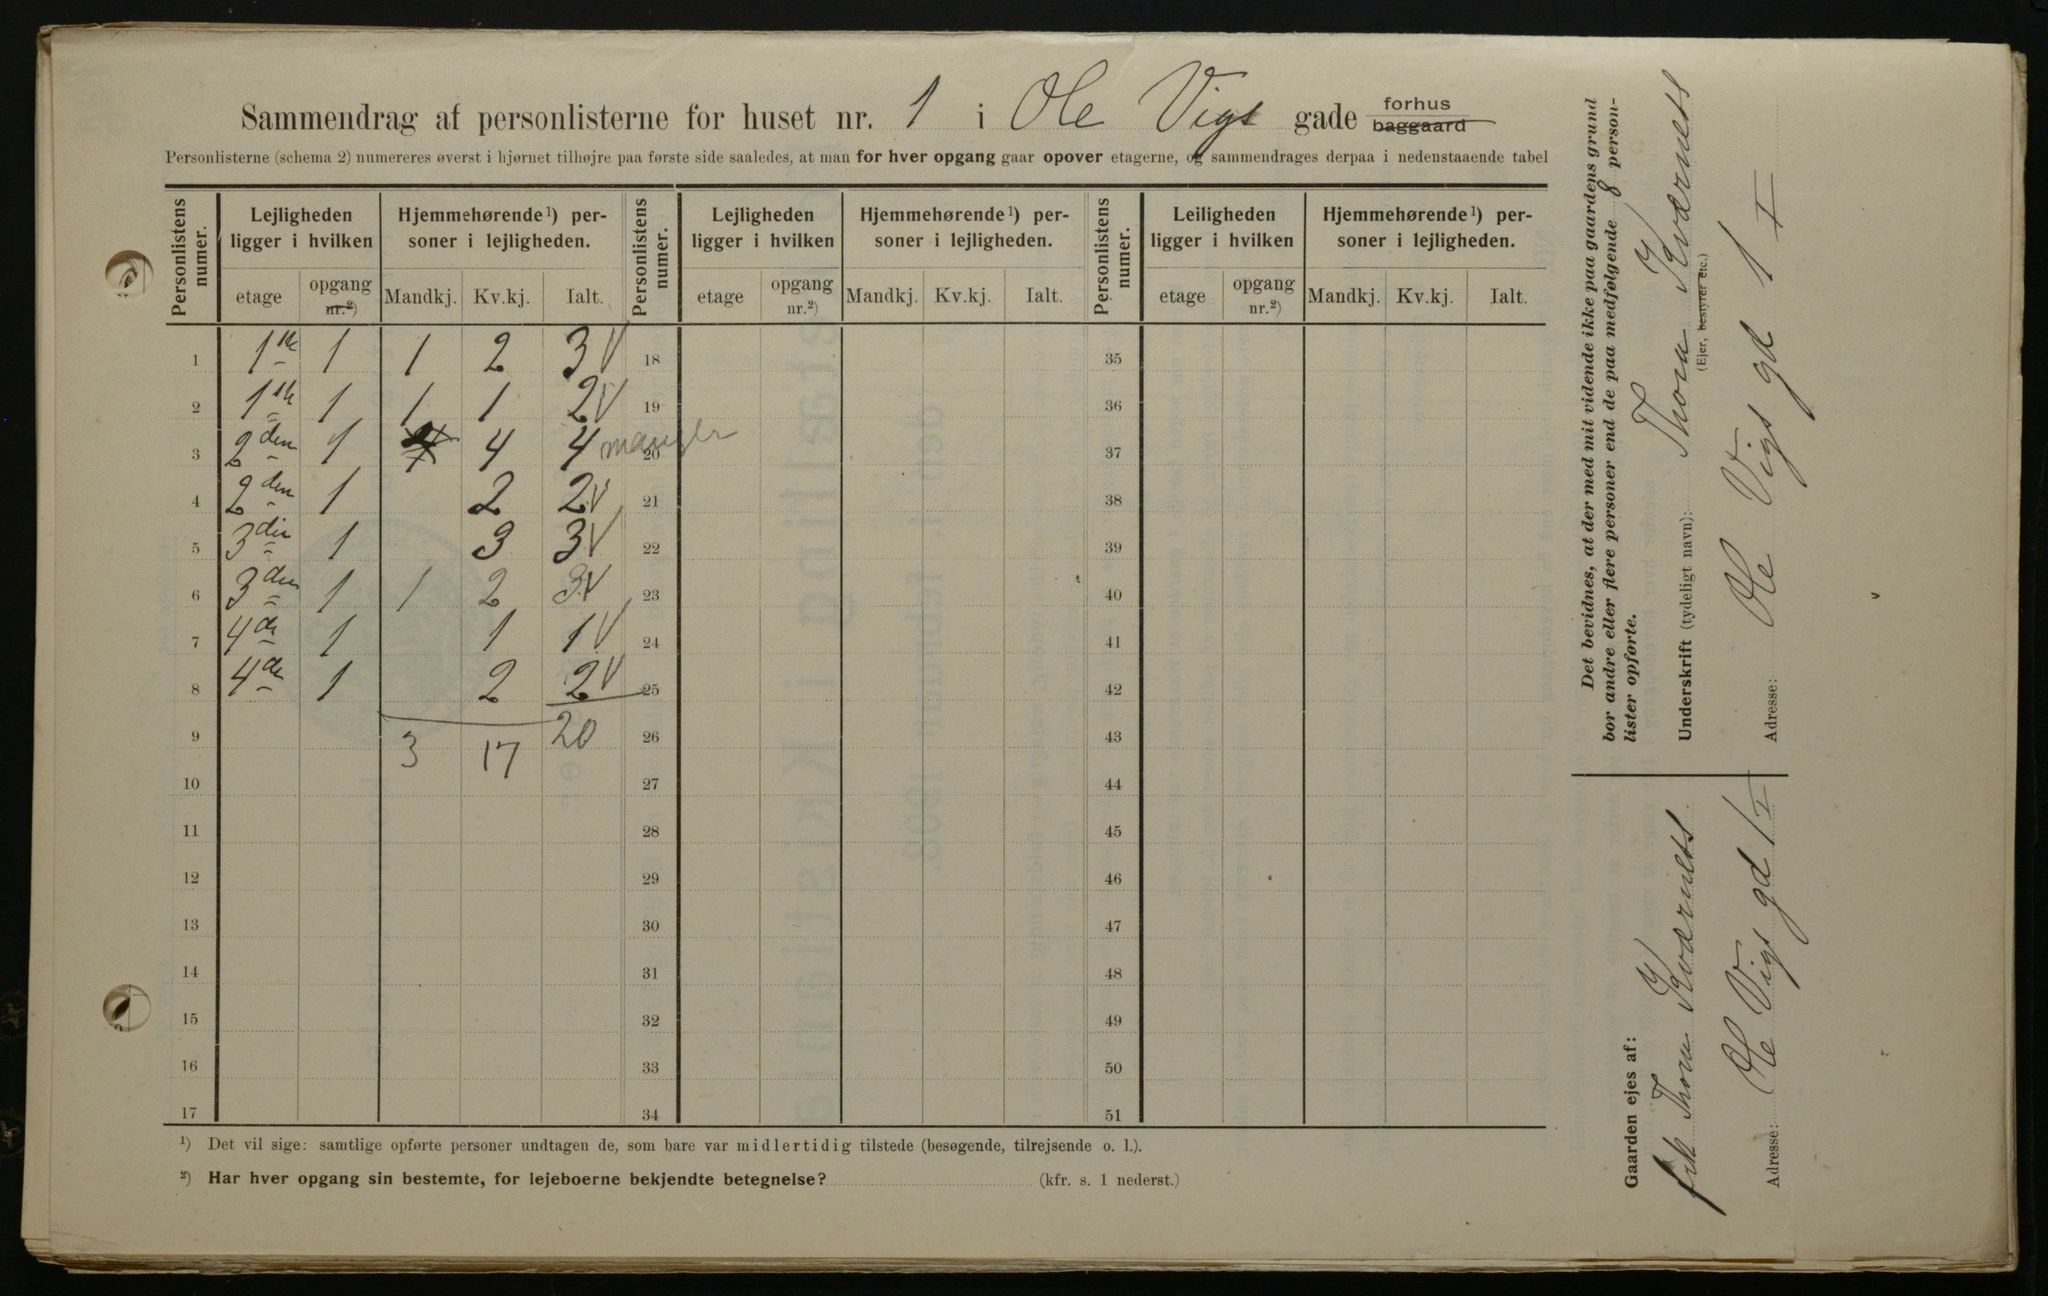 Sammendrag af personlisterne for huset nr. 1 i Ole Vigs gade forhus baggaard
Personlisterne (schema 2) numereres øverst i hjørnet tilhøjre paa første side saaledes, at man for hver opgang gaar opover etagerne, og sammendrages derpaa i nedenstaaende tabel
Personlistens numer.
Lejligheden ligger i hvilken
Hjemmehørende ¹) personer i lejligheden.
Personlistens numer.
Lejligheden ligger i hvilken
Hjemmehørende ¹) personer i lejligheden.
Personlistens numer.
Leiligheden ligger i hvilken
Hjemmehørende ¹) personer i lejligheden.
etage opgang nr.²) Mandkj. Kv.kj. Ialt. etage opgang nr.²) Mandkj. Kv.kj. Ialt. etage opgang nr.²) Mandkj. Kv.kj. Ialt.
1 1ste 1 1 2 3 V 18 35
2 1ste 1 1 1 2 V 19 36
3 2den 1 4 4 mangler 20 37
4 2den 1 2 2 V 21 38
5 3die 1 3 3 V 22 39
6 3den 1 1 2 3 V 23 40
7 4de 1 1 1 V 24 41
8 4de 1 2 2 V 25 42
9 3 17 20 26 43
10 27 44
11 28 45
12 29 46
13 30 47
14 31 48
15 32 49
16 33 50
17 34 51
¹) Det vil sige: samtlige opførte personer undtagen de, som bare var midlertidig tilstede (besøgende, tilrejsende o. l.).
²) Har hver opgang sin bestemte, for lejeboerne bekjendte betegnelse? (kfr. s. 1 nederst.)
Det bevidnes, at der med mit vidende ikke paa gaardens grund
bor andre eller flere personer end de paa medfølgende 8 person-
lister opførte.
Underskrift (tydeligt navn): Thora Kværness
(Ejer, bestyrer etc.)
Adresse: Ole Vigs gd 1 I
Gaarden ejes af:
frk Thora Kværness
Adresse: Ole Vigs gd 1 I